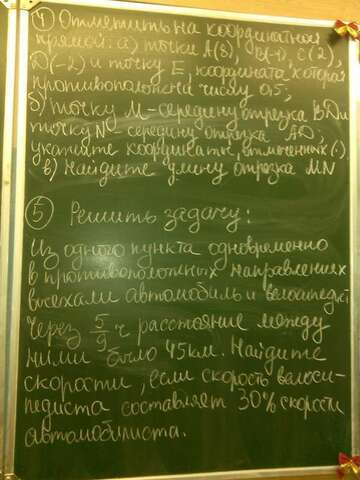 ④ Отметить на координатной
прямой: а) точки A(8), B(-4), C(2),
D(-2) и точку E, координата которая
противоположна числу 0,5;
б) точку M-середину отрезка BD и
точку N-середину отрезка AD;
укажите координаты, отмеченных (·)
в) Найдите длину отрезка MN
⑤ Решить задачу:
Из одного пункта одновременно
в противоположных направлениях
выехали автомобиль и велосипедист
Через 5/9 ч расстояние между
ними было 45км. Найдите
скорости, если скорость велоси-
педиста составляет 30% скорости
автомобилиста.